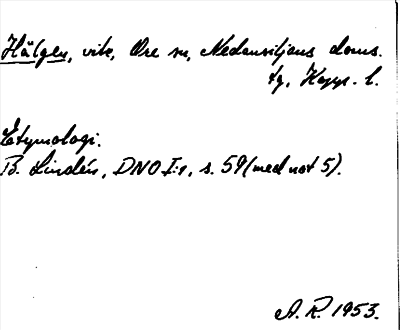 Hålgen, vik, Ore sn, Nedansiljans doms.
tg, Kopp. l.
Etymologi.
B. Lindén, DNO I:1, s. 59 (med not 5).
A. R. 1953.